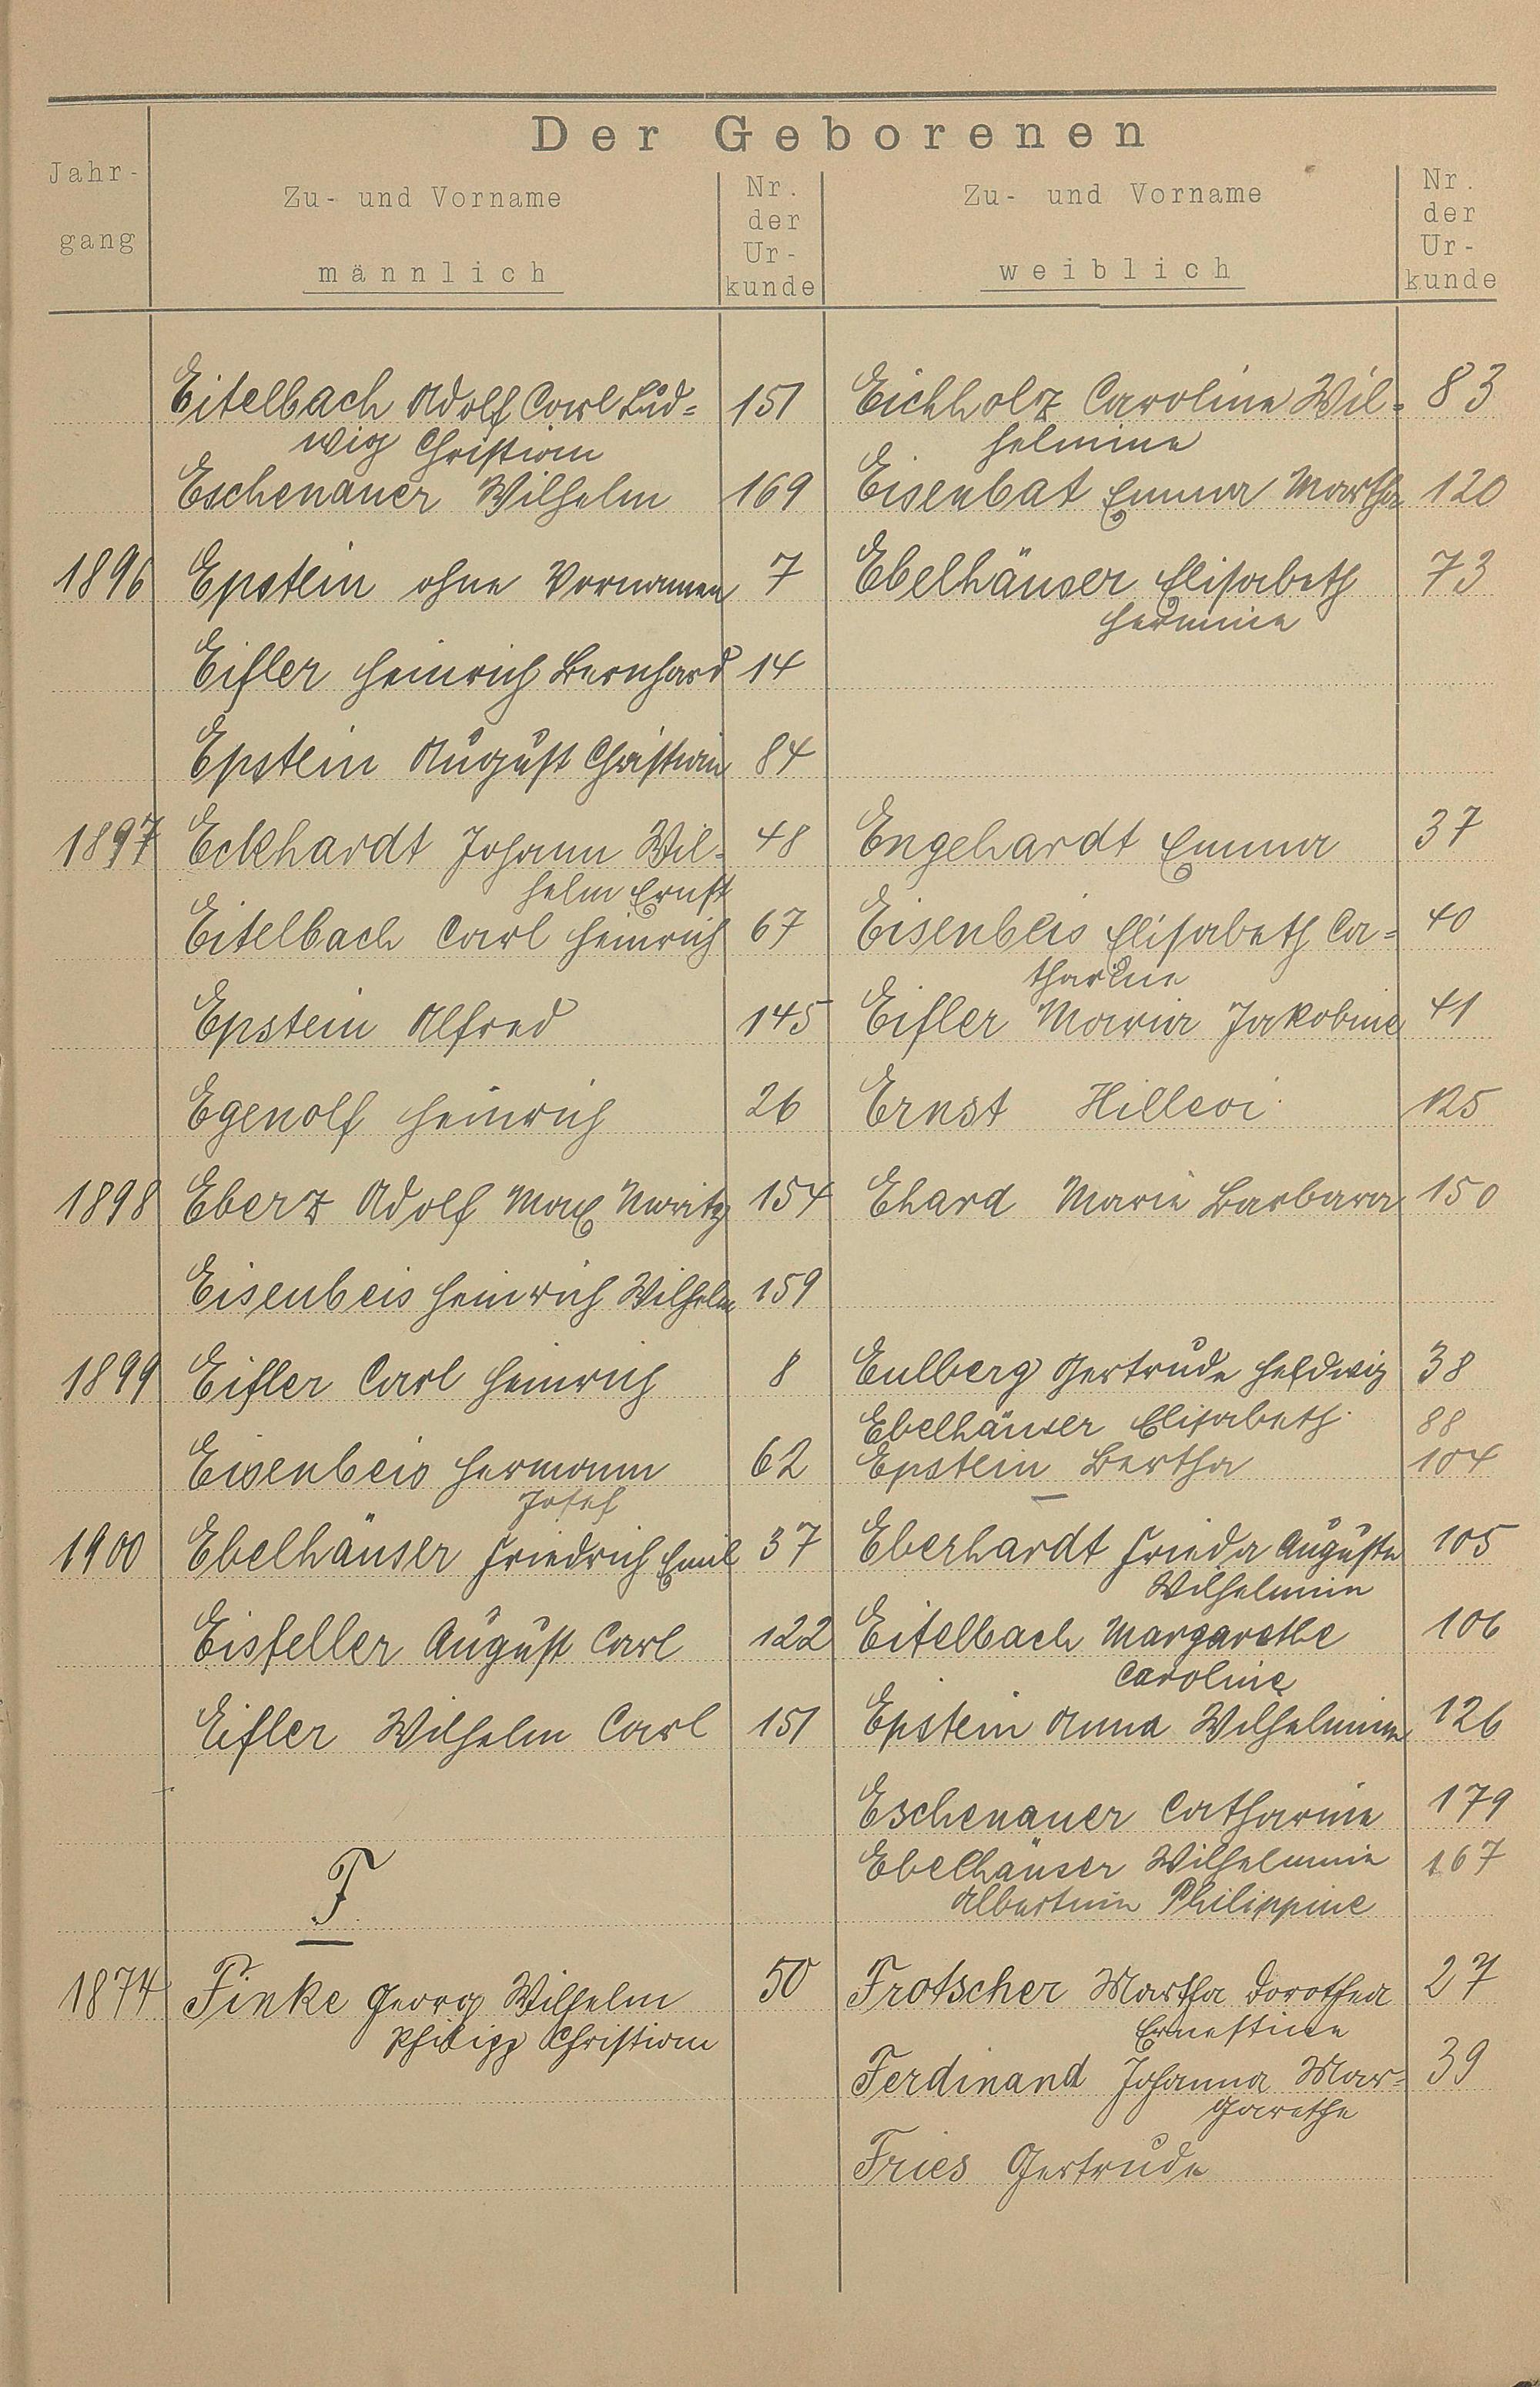 Der Geborenen
Jahr-
gang
Zu- und Vorname
männlich
Nr.
der
Ur-
kunde
Zu- und Vorname
weiblich
Nr.
der
Ur-
kunde
Eitelbach Adolf Carl Lud= 151 Eichholz Caroline Wil= 83
wig Christian helmine
Eschenauer Wilhelm 169 Eisenbat Emma Martha 120
1896 Epstein ohne Vornamen 7 Ebelhäuser Elisabeth 73
Hermine
Eifler Heinrich Bernhard 14
Epstein August Christian 84
1897 Eckhardt Johann Wil= 48 Engehardt Emma 37
helm Ernst
Eitelbach Carl Heinrich 67 Eisenbeis Elisabeth Ca= 40
tharine
Epstein Alfred 145 Eifler Maria Jakobine 41
Egenolf Heinrich 26 Ernst 125
1898 Eberz Adolf Max Moritz 154 Ehard Marie Barbara 150
Eisenbeis Heinrich Wilhelm 159
1899 Eifler Carl Heinrich 8 Eulberg Gertrude Hedwig 38
Ebelhäuser Elisabeth 88
Eisenbeis Hermann 62 Epstein Bertha 104
Josef
1900 Ebelhäuser Friedrich Emil 37 Eberhardt Frieda Auguste 105
Wilhelmine
Eisfeller August Carl 122 Eitelbach Margarethe 106
Caroline
Eifler Wilhelm Carl 151 Epstein Anna Wilhelmine 126
Eschenauer Catharine 179
Ebelhäuser Wilhelmine 167
Albertine Philippine
F
1874 Finke Georg Wilhelm 50 Frotscher Martha Dorothea 27
Philipp Christian Ernestine
Ferdinand Johanna Mar= 39
garethe
Fries Gertrude